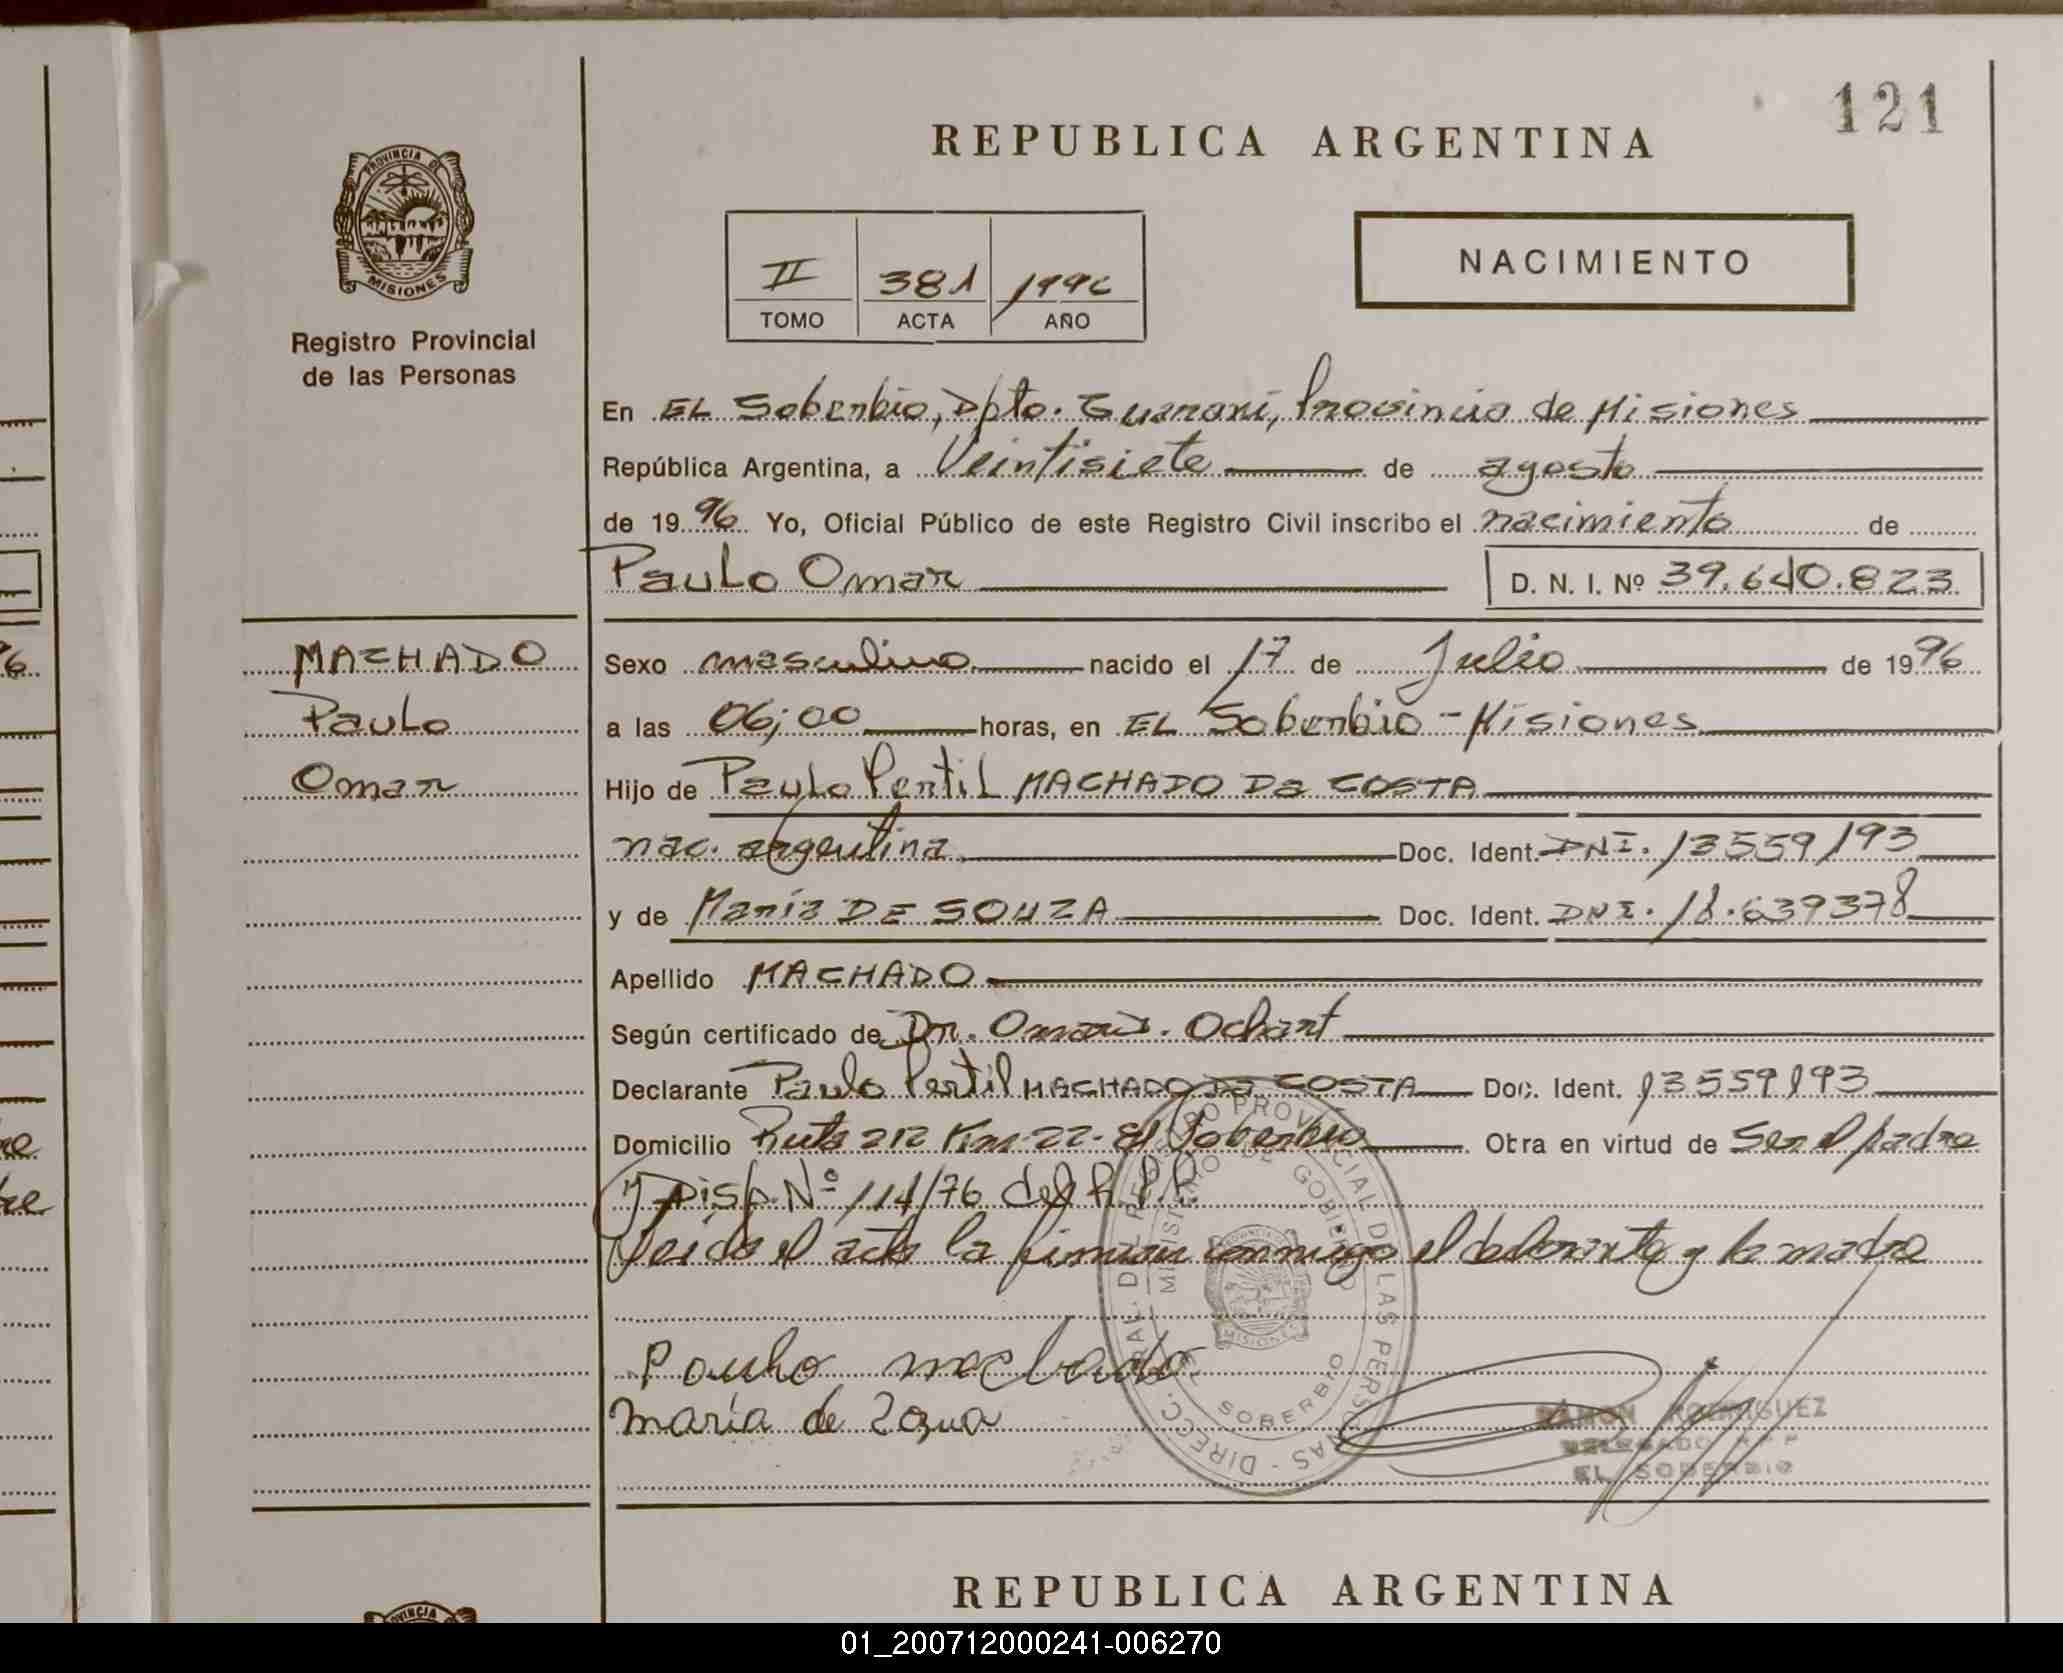 121
REPUBLICA ARGENTINA
PROVINCIA DE
MISIONES
Registro Provincial
de las Personas
II 381 1996
TOMO ACTA AÑO
NACIMIENTO
En EL Soberbio, Dpto. Guarani, Provincia de Misiones
República Argentina, a Veintisiete de agosto
de 1996 Yo, Oficial Público de este Registro Civil inscribo el nacimiento de
Paulo Omar D. N. I. Nº 39.640.823
MACHADO
Paulo
Omar
Sexo masculino nacido el 17 de Julio de 1996
a las 06;00 horas, en EL Soberbio - Misiones
Hijo de Paulo Pertil MACHADO Da COSTA
nac. argentina Doc. Ident. DNI. 13559193
y de María DE SOUZA Doc. Ident. DNI. 18.639378
Apellido MACHADO
Según certificado de Dr. Omar Ochart
Declarante Paulo Pertil MACHADO Da COSTA Doc. Ident. 13559193
Domicilio Ruta 212 Km 22 - El Soberbio Obra en virtud de Ser el padre
y Disp. Nº 114/76 del R.P.P.
Leida el acta la firman conmigo el declarante y la madre
Paulo machado
maría de Zoua
DIRECC. GRAL. DEL REGISTRO PROVINCIAL DE LAS PERSONAS
MINISTERIO DE GOBIERNO
MISIONES
EL SOBERBIO
RAMON RODRIGUEZ
DELEGADO R P P
EL SOBERBIO
REPUBLICA ARGENTINA
01_200712000241-006270